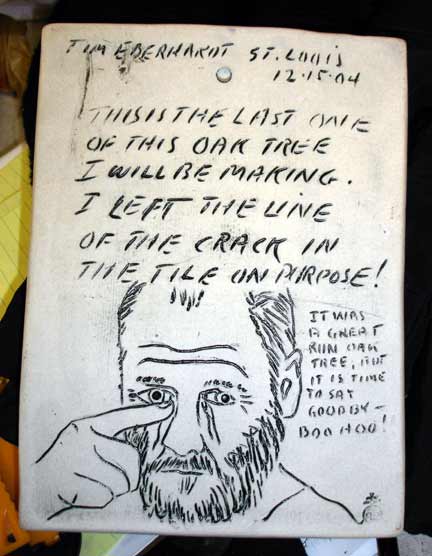 TIM EBERHARDT ST. LOUIS
12·15·04
THIS IS THE LAST ONE
OF THIS OAK TREE
I WILL BE MAKING.
I LEFT THE LINE
OF THE CRACK IN
THE TILE ON PURPOSE!
IT WAS
A GREAT
RUN OAK
TREE, BUT
IT IS TIME
TO SAY
GOODBY -
BOO HOO!